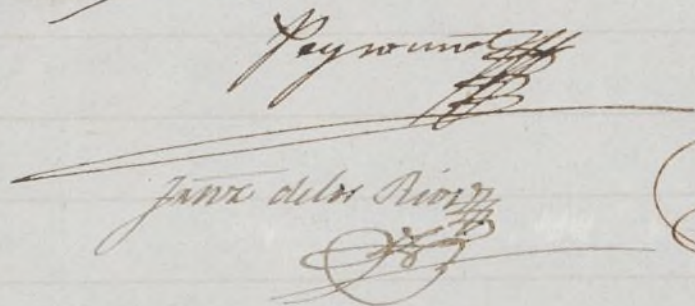 Peyronnet
de los Rios